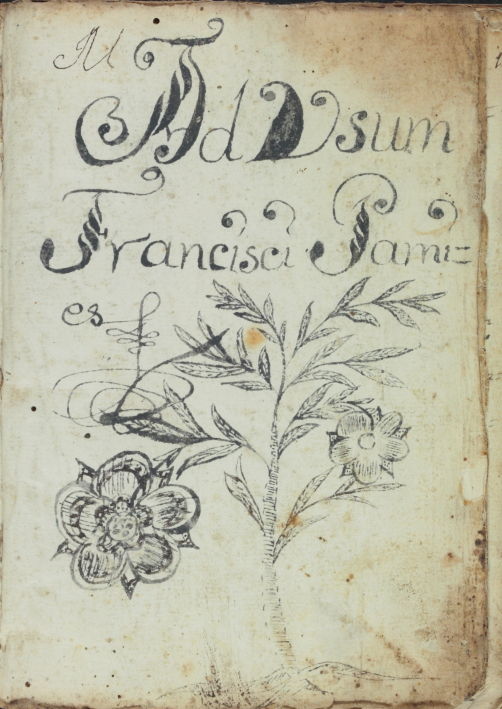 Ad Vsum
Francisci Pami=
es